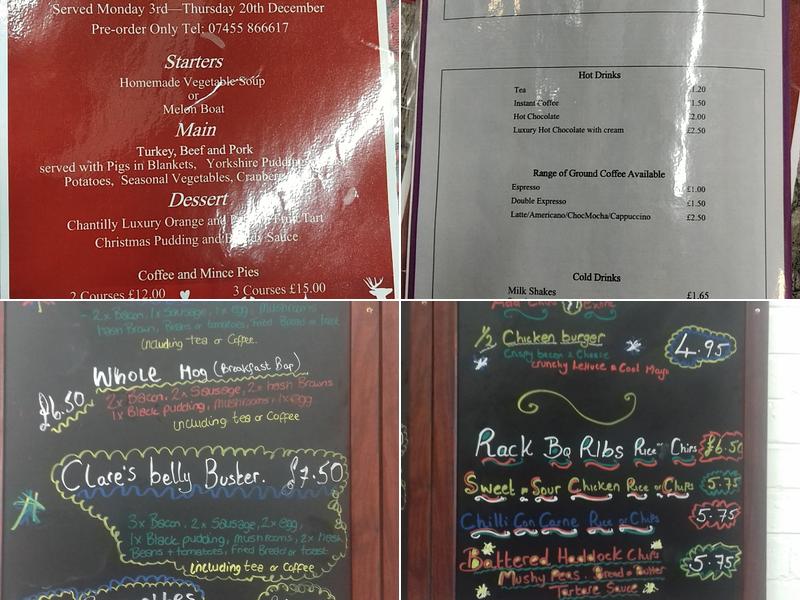 Served Monday 3rd—Thursday 20th December
Pre-order Only Tel: 07455 866617
Starters
Homemade Vegetable Soup
or
Melon Boat
Main
Turkey, Beef and Pork
served with Pigs in Blankets, Yorkshire Pudding
Potatoes, Seasonal Vegetables,
Dessert
Chantilly Luxury Orange and Tart
Christmas Pudding and Sauce
Coffee and Mince Pies
2 Courses £12.00 3 Courses £15.00
Hot Drinks
Tea £1.20
Instant Coffee £1.50
Hot Chocolate £2.00
Luxury Hot Chocolate with cream £2.50
Range of Ground Coffee Available
Espresso £1.00
Double Expresso £1.50
Latte/Americano/ChocMocha/Cappuccino £2.50
Cold Drinks
Milk Shakes £1.65
- 2x Bacon, 1x Sausage, 1x egg, Mushrooms
hash Brown, Beans or tomatoes, Fried Bread or toast
including tea or Coffee.
Whole Hog (Breakfast Bap)
£6.50
2x Bacon, 2x Sausage, 2x hash Browns
1x Black pudding, Mushrooms, 1x egg
including tea or Coffee
Clare's belly Buster. £7.50
3x Bacon, 2x Sausage, 2x egg,
1x Black pudding, mushrooms, 2x Hash
Beans + tomatoes, Fried Bread or toast
including tea or Coffee
1/2 Chicken burger 4.95
Crispy bacon & Cheese
crunchy Lettuce & Cool Mayo
Rack BQ Ribs Rice or Chips £6.50
Sweet & Sour Chicken Rice or Chips 5.75
Chilli Con Carne Rice or Chips 5.75
Battered Haddock Chips 5.75
Mushy Peas. Bread & Butter
Tartare Sauce